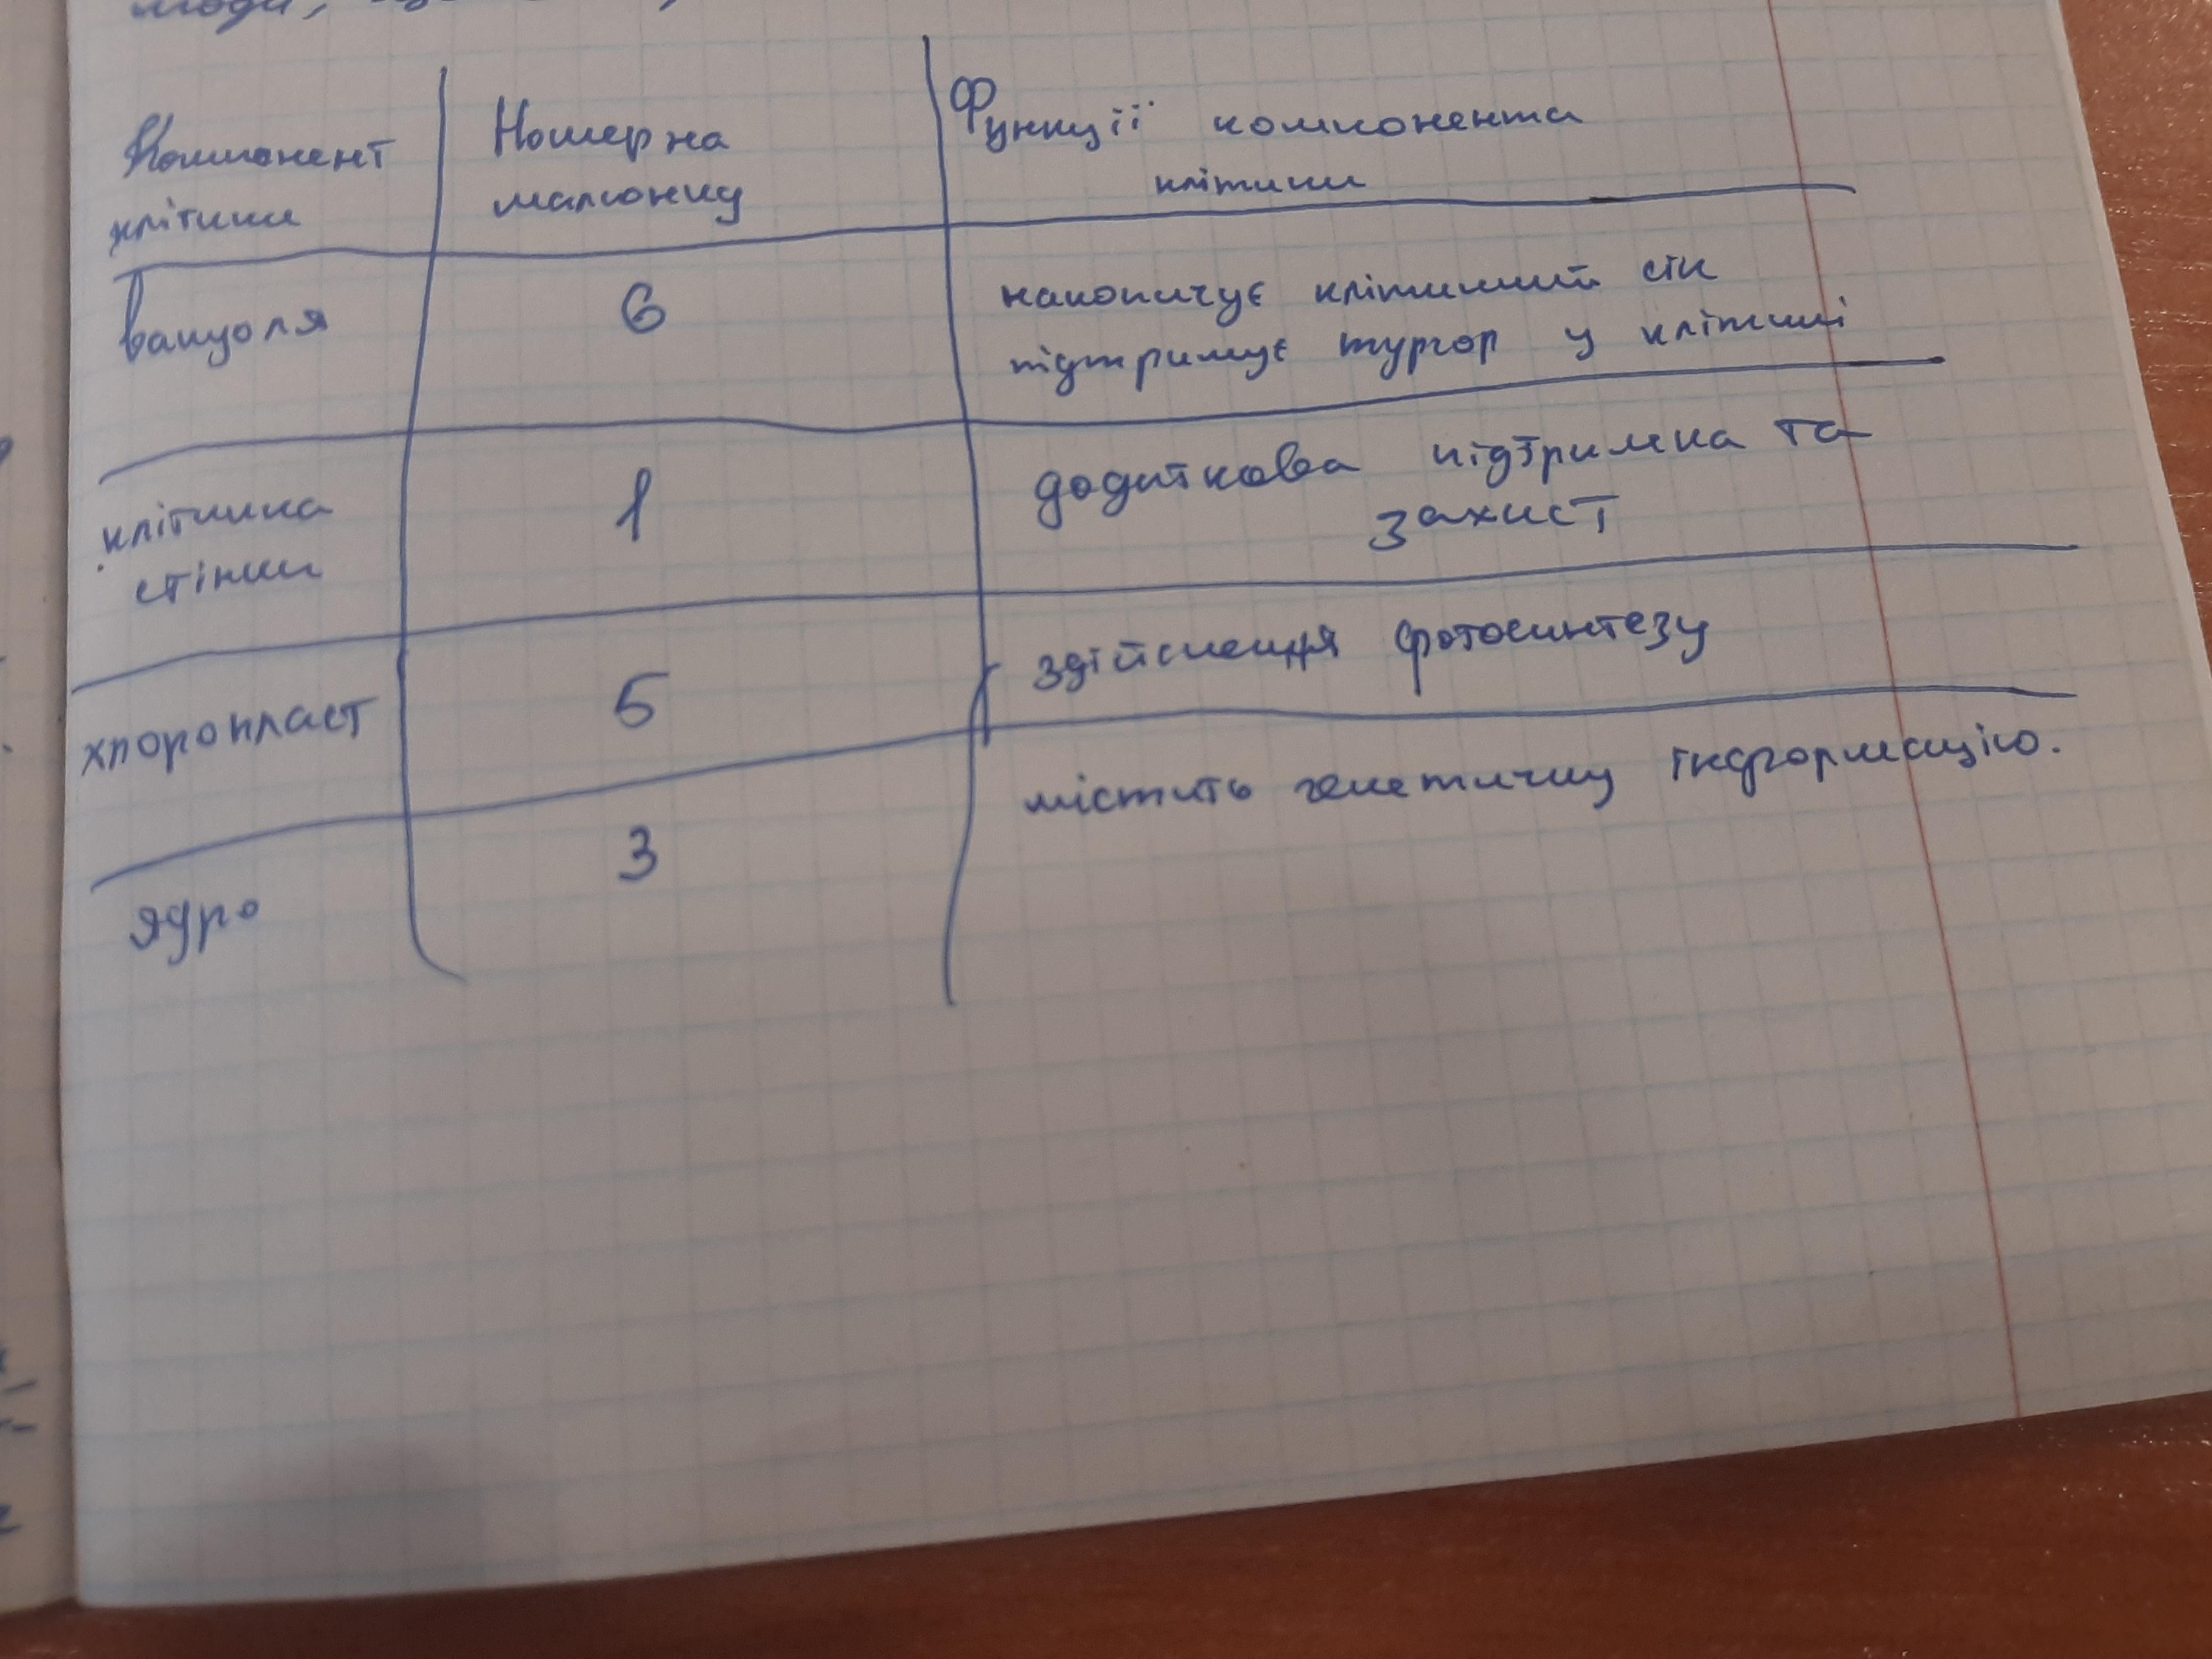 Компонент
клітини
Номер на
малюнку
Функції компонента
клітини
вакуоля
6
накопичує клітинний сік
підтримує тургор у клітині
клітинна
стінки
1
додаткова підтримка та
захист
хлоропласт
5
здійснення фотосинтезу
ядро
3
містить генетичну інформацію.